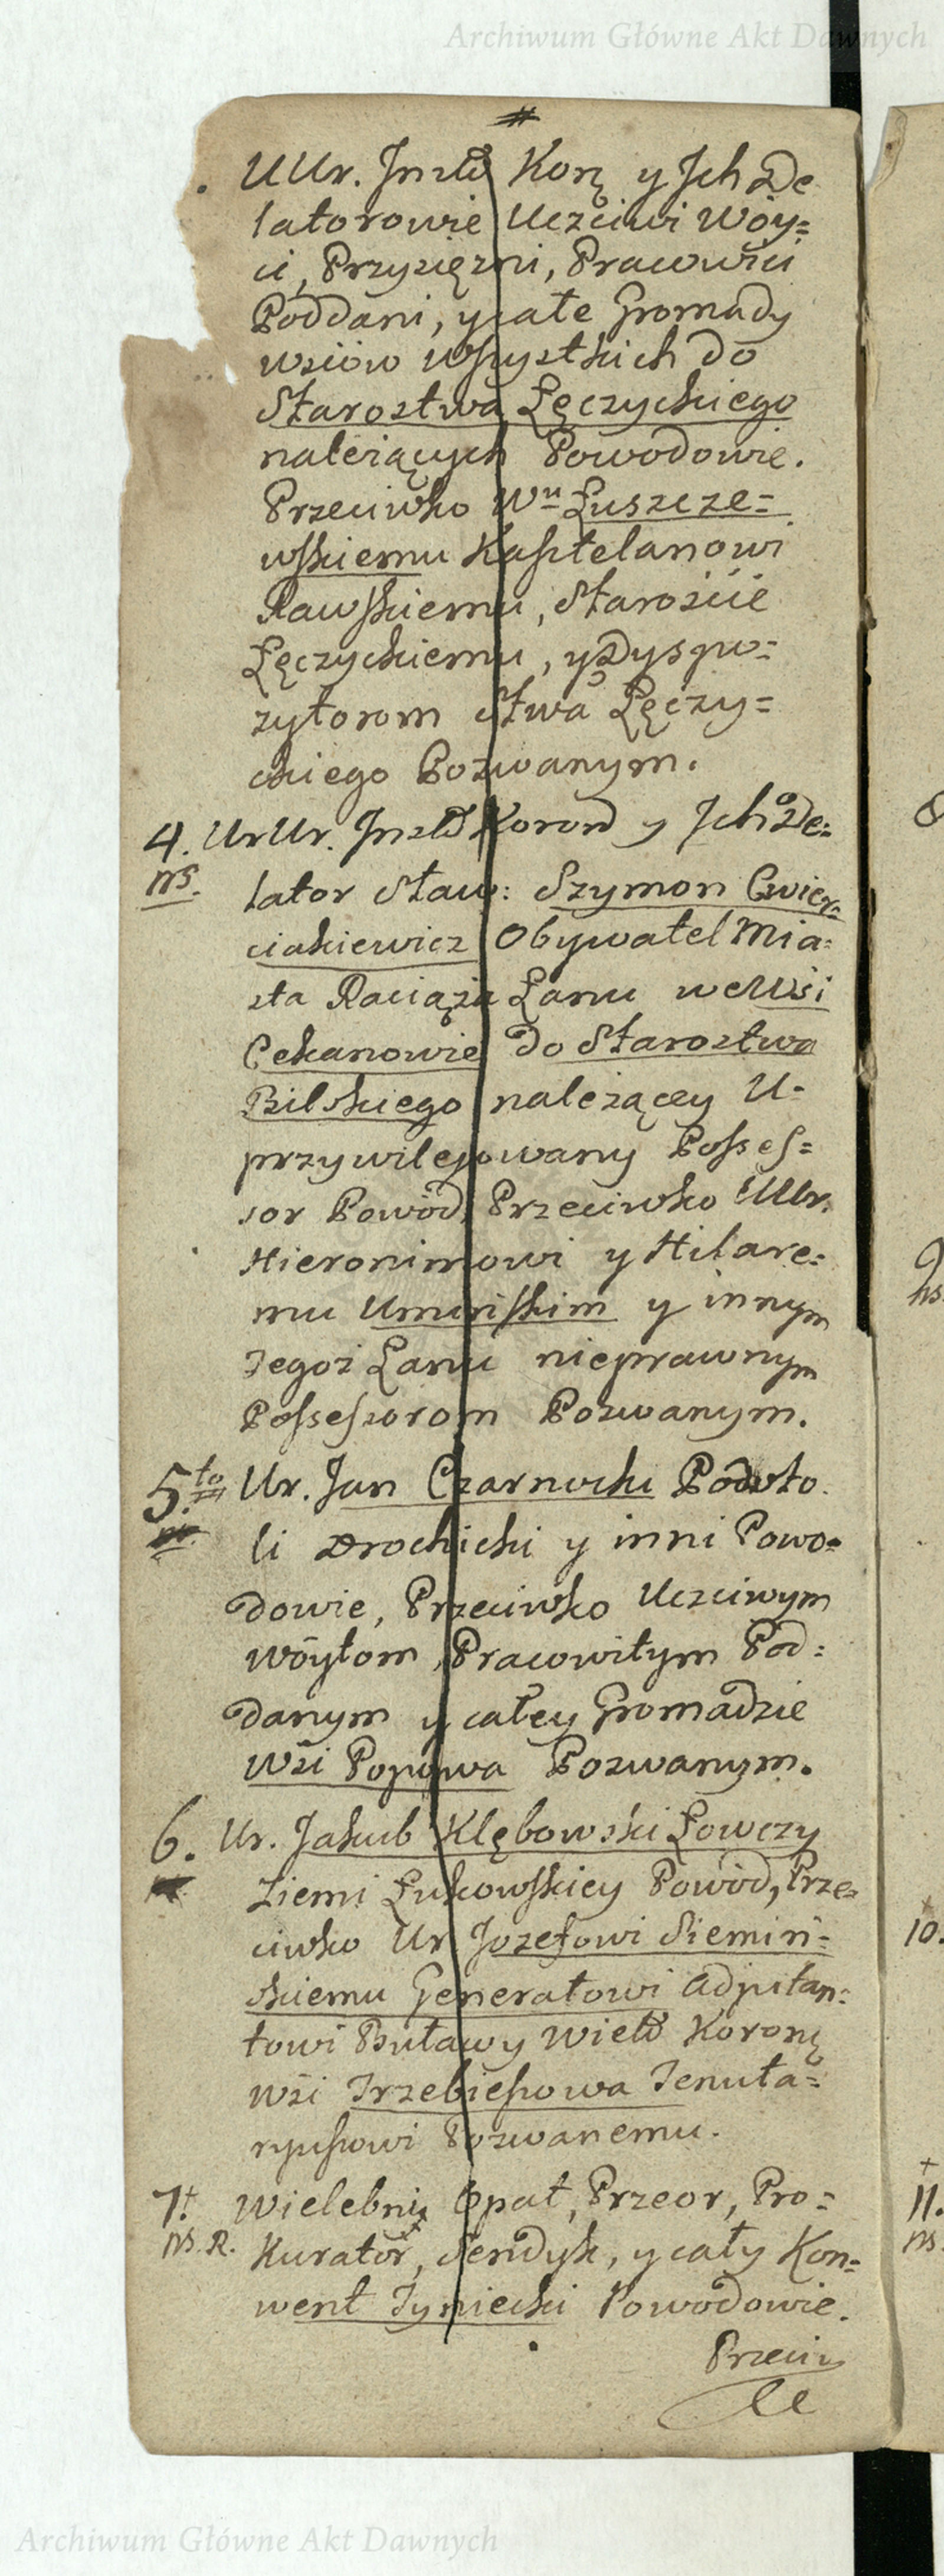 Archiwum Główne Akt Dawnych
#
UUr. Instt Korꝫ y Jch De
latorowie Uczciwi Wóy=
ci, Przysięzni, Pracowici
Poddani, y całe Gromady
wsiów wszystkich do
Starostwa Łęczyckiego
należących Powodowie.
Przeciwko Wu Łuszcze=
wskiemu Kasztelanowi
Rawskiemu, Staroście
Łęczyckiemu, y Dyspo=
zytorom Stwa Łęczy=
ckiego Pozwanym.
4. UrUr. Instt Koron y Jch De=
ns. lator Sław: Szymon Cwier=
ciakiewicz Obywatel Mia=
sta Raciąża Łanu we Wsi
Cekanowie do Starostwa
Bilskiego należącey U=
przywilejowany Posses=
sor Powód, Przeciwko UUr.
Hieronimowi y Hilare=
mu Umińskim y innym
Tegoż Łanu nieprawnym
Possessorom Pozwanym.
5.to Ur. Jan Czarnocki Podsto
li Drochicki y inni Powo=
dowie, Przeciwko Uczciwym
Wóytom, Pracowitym Pod=
danym y całey Gromadzie
Wsi Popowa Pozwanym.
6. Ur. Jakub Klębowski Łowczy
Ziemi Łukowskiey Powód, Prze=
ciwko Ur. Jozefowi Siemiń=
skiemu Generałowi Adjutan=
towi Buławy Wielt Koronꝫ
Wsi Trzebieszowa Tenuta=
ryuszowi Pozwanemu.
7. Wielebni Opat, Przeor, Pro=
ns. R. Kurator, Sendyk, y cały Kon=
went Tyniecki Powodowie.
Przeciw
10.
11.
ns.
Archiwum Główne Akt Dawnych